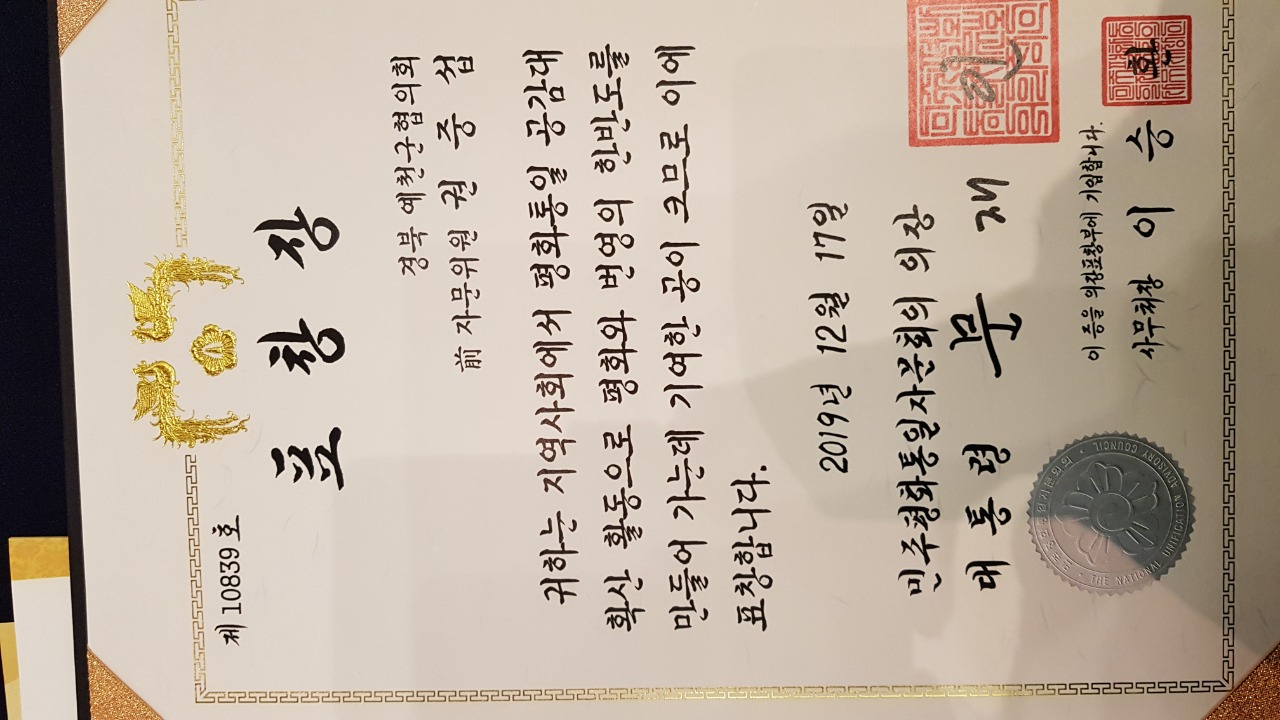 제 10839 호
표 창 장
경북 예천군협의회
前 자문위원 권 중 섭
귀하는 지역사회에서 평화통일 공감대
확산 활동으로 평화와 번영의 한반도를
만들어 가는데 기여한 공이 크므로 이에
표창합니다.
2019년 12월 17일
민주평화통일자문회의 의장
대 통 령 문 재 인
이 증을 의장표창부에 기입합니다.
사무처장 이 승 환
THE NATIONAL UNIFICATION ADVISORY COUNCIL